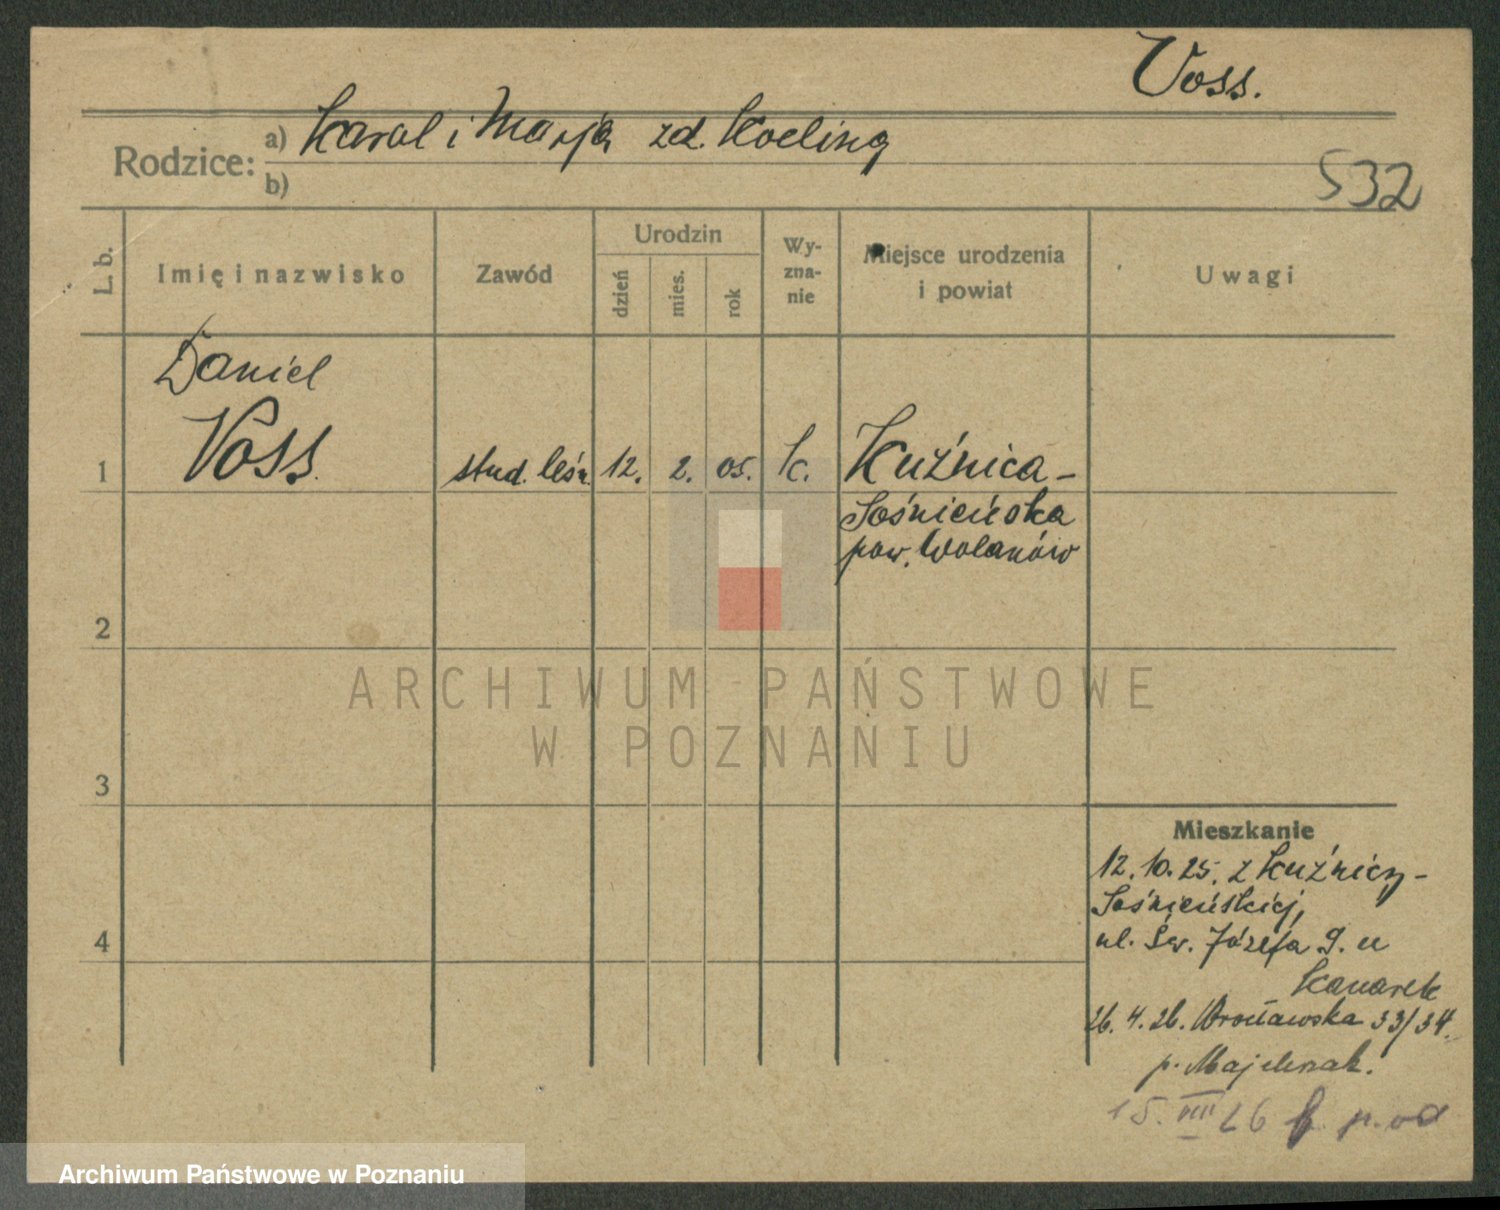 Voss.
Rodzice: a) Karol i Marja zd. Koeling
b)
532
L. b.
Imię i nazwisko
Zawód
Urodzin
dzień
mies.
rok
Wy-
zna-
nie
Miejsce urodzenia
i powiat
Uwagi
Daniel
1 Voss. stud. leśn. 12. 2. 05. k. Kuźnica-
Sośnieńska
pow. Wolanów
2
ARCHIWUM PAŃSTWOWE
W POZNANIU
3
Mieszkanie
12. 10. 25. z Kuźnicy-
Sośnieńskiej,
4 ul. Św. Józefa 9. u
Kanarek
26. 4. 26. Wrocławska 33/34.
p.
15. VIII 26 p. od
Archiwum Państwowe w Poznaniu